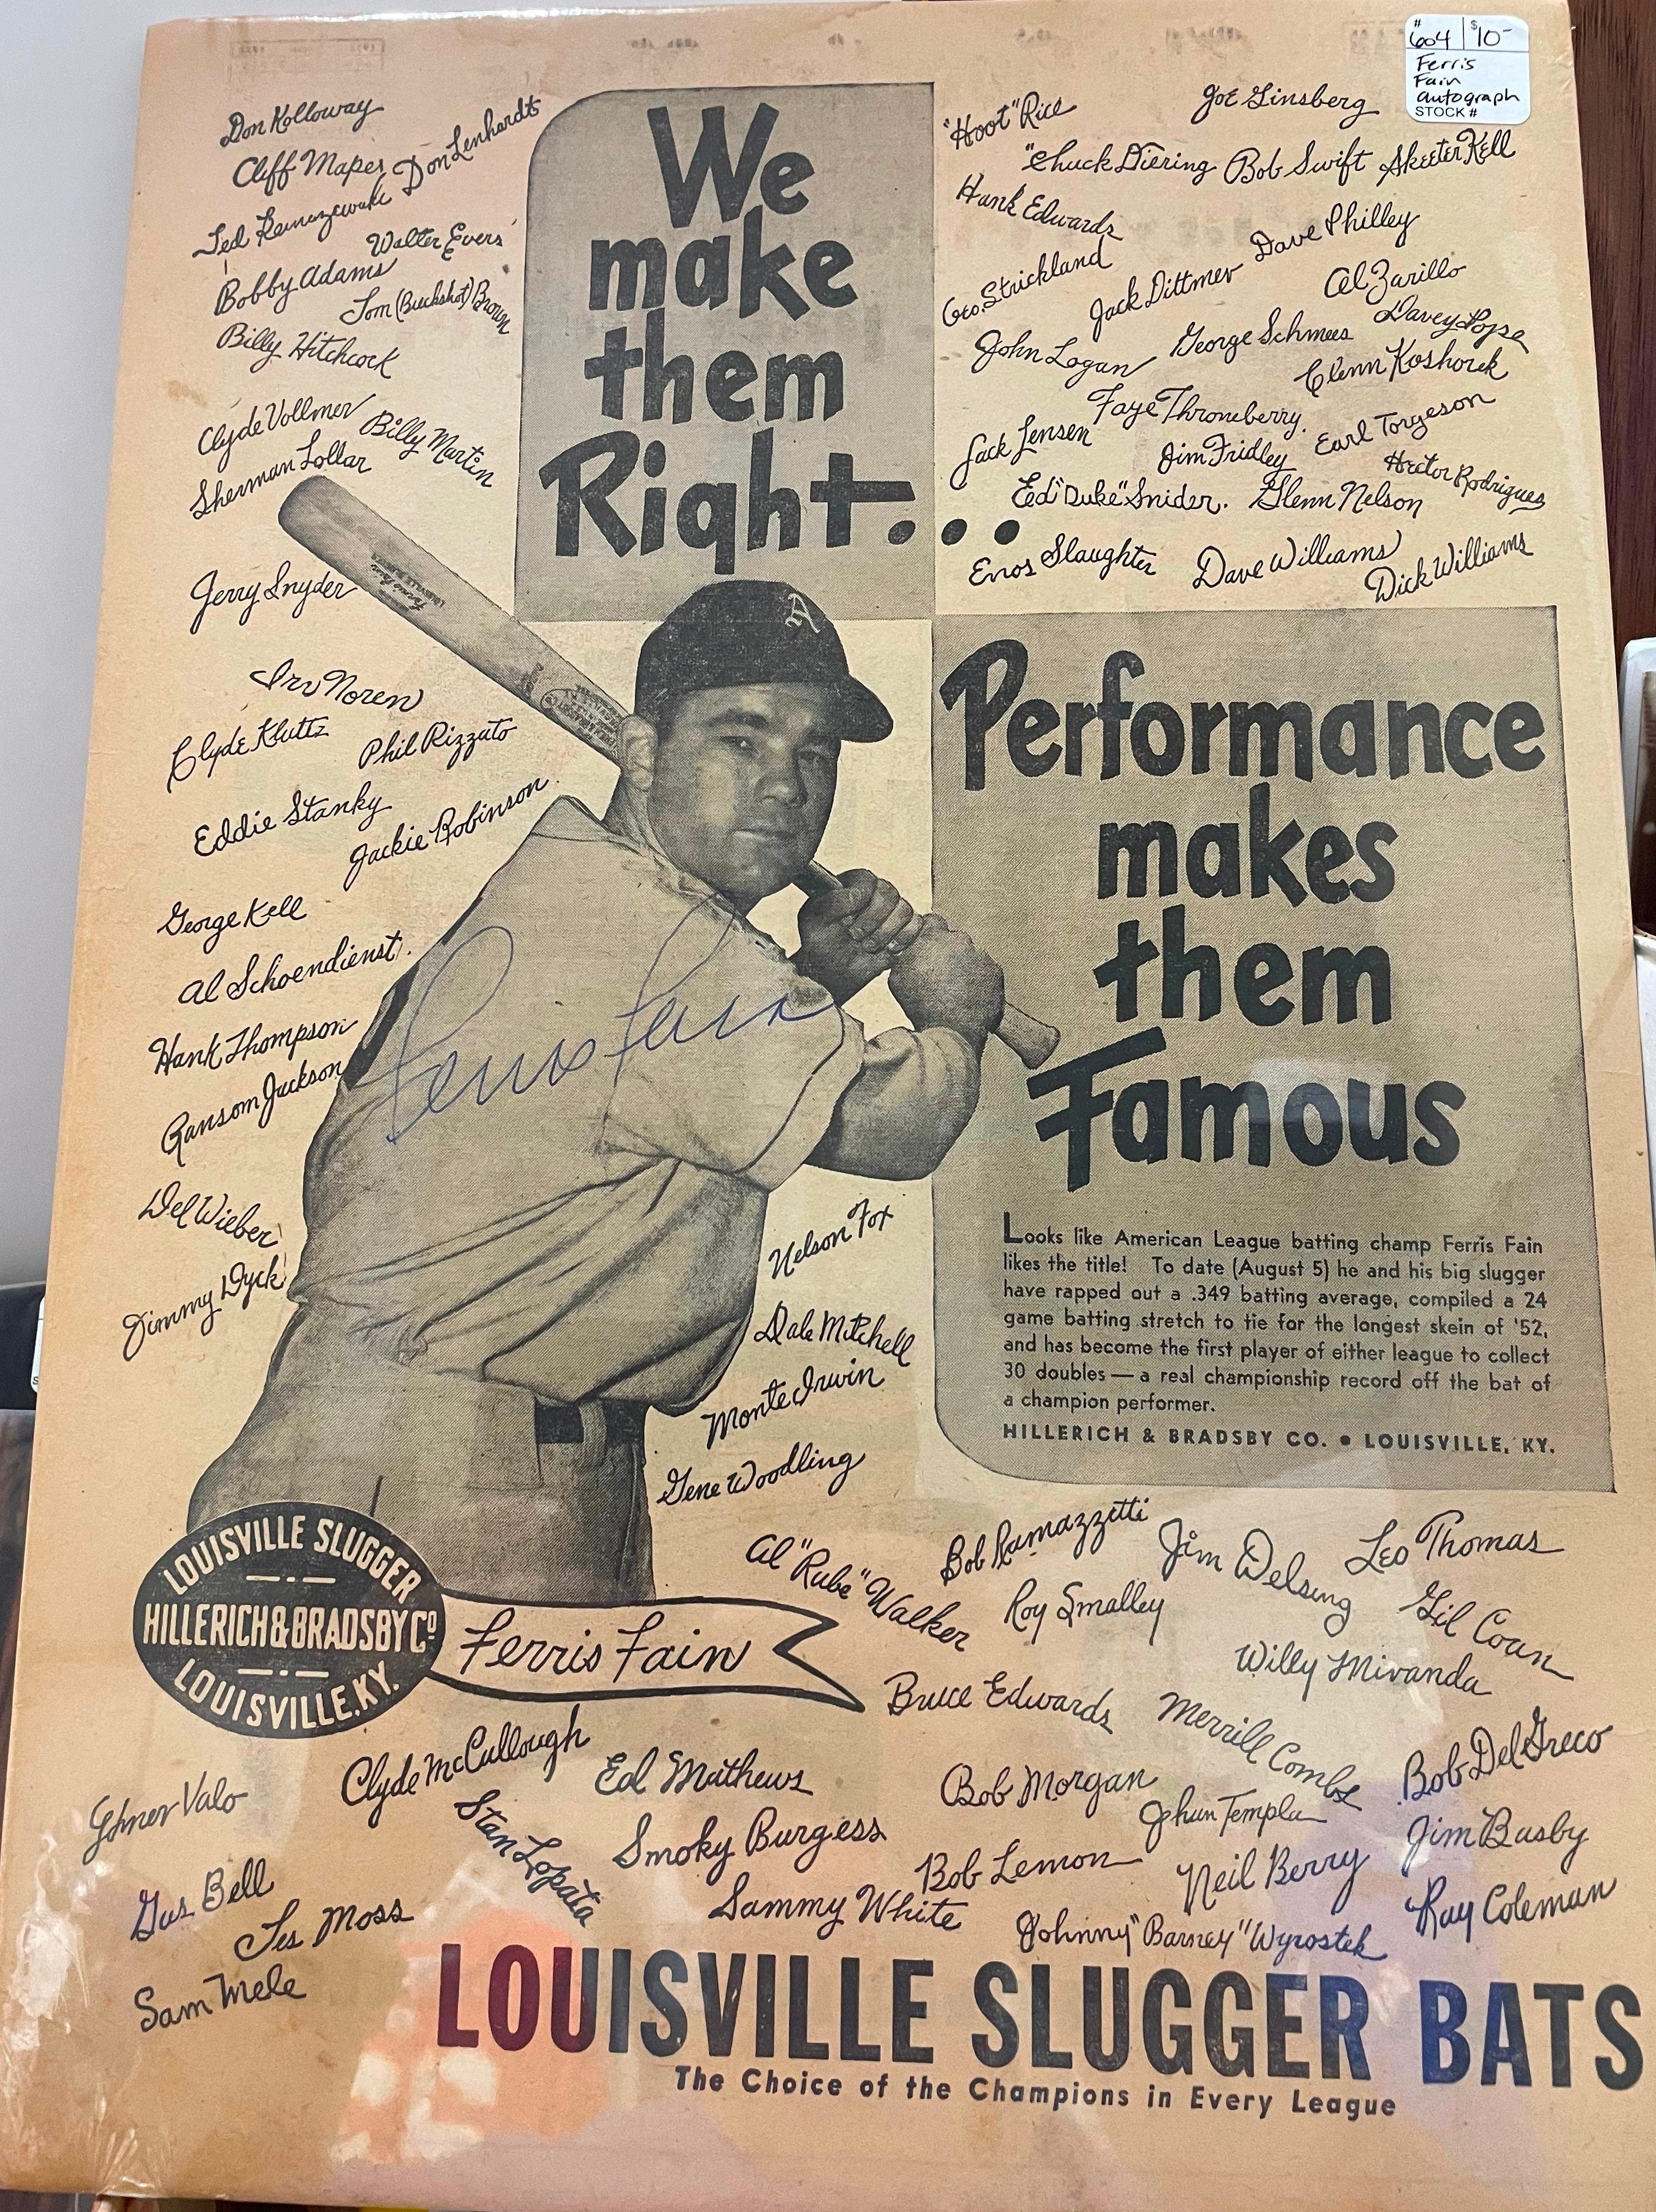 # 604 | $10-
Ferris
Fain
autograph
STOCK #
Don Kolloway
Cliff Mapes
Don Lenhardt
Walter Evers
Bobby Adams
Tom (Buckshot) Brown
Billy Hitchcock
Clyde Vollmer
Billy Martin
Sherman Lollar
Jerry Snyder
Irv Noren
Clyde Kluttz
Phil Rizzuto
Eddie Stanky
Jackie Robinson
George Kell
Al Schoendienst
Hank Thompson
Ransom Jackson
Del Wieber
Jimmy Dyck
We
make
them
Right...
"Hoot" Rice
Joe Ginsberg
"Chuck Diering
Bob Swift
Skeeter Kell
Hank Edwards
Dave Philley
Geo. Strickland
Jack Dittmer
Al Zarillo
John Logan
George Schmees
Davey Pope
Glenn Koshorek
Faye Throneberry.
Jack Jensen
Jim Fridley
Earl Torgeson
Hector Rodrigues
Ed "Duke" Snider.
Glenn Nelson
Enos Slaughter
Dave Williams
Dick Williams
A
Ferris Fain
Performance
makes
them
Famous
Looks like American League batting champ Ferris Fain
likes the title! To date (August 5) he and his big slugger
have rapped out a .349 batting average, compiled a 24
game batting stretch to tie for the longest skein of '52,
and has become the first player of either league to collect
30 doubles — a real championship record off the bat of
a champion performer.
HILLERICH & BRADSBY CO. • LOUISVILLE, KY.
Nelson Fox
Dale Mitchell
Monte Irwin
Gene Woodling
LOUISVILLE SLUGGER
HILLERICH & BRADSBY Co
LOUISVILLE.KY.
Ferris Fain
Al "Rube" Walker
Bob Ramazzetti
Jim Delsing
Leo Thomas
Roy Smalley
Gil Coan
Willy Miranda
Bruce Edwards
Merrill Combs
Bob Del Greco
Clyde McCullough
Ed Mathews
Bob Morgan
John Temple
Jim Busby
Elmer Valo
Stan Lopata
Smoky Burgess
Bob Lemon
Neil Berry
Ray Coleman
Gus Bell
Les Moss
Sammy White
Johnny "Barney" Wyrostek
Sam Mele
LOUISVILLE SLUGGER BATS
The Choice of the Champions in Every League